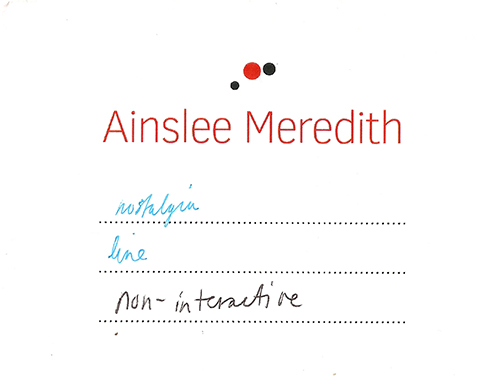 Ainslee Meredith
nostalgia
line
non-interactive